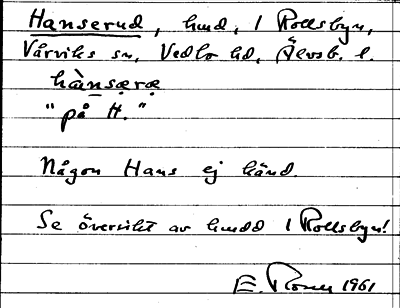 Hanserud, hmd, i Rollsbyn,
Vårviks sn, Vedbo hd, Älvsb. l.
hànsæræ
"på H."
Någon Hans ej känd.
Se översikt av hmdd i Rollsbyn!
E. 1961